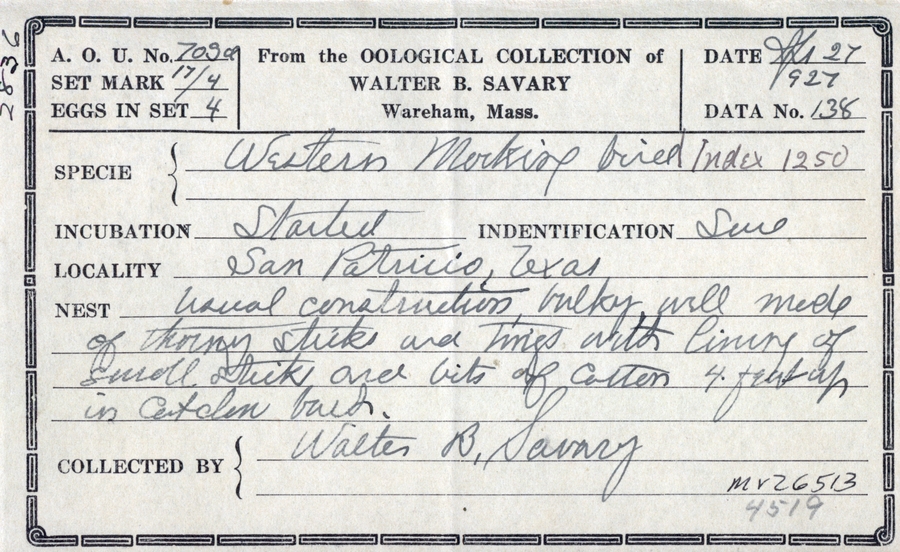 2836
A. O. U. No. 703a
SET MARK 17/4
EGGS IN SET 4
From the OOLOGICAL COLLECTION of
WALTER B. SAVARY
Wareham, Mass.
DATE 27
1927
DATA No. 138
SPECIE Western Mocking bird Index 1250
INCUBATION Started INDENTIFICATION Sure
LOCALITY San Patricio, Texas
NEST usual construction, bulky, well made
of thorny sticks and twigs with lining of
small sticks and bits of cotton 4 feet up
in bush.
COLLECTED BY Walter B. Savary
MV26513
4519